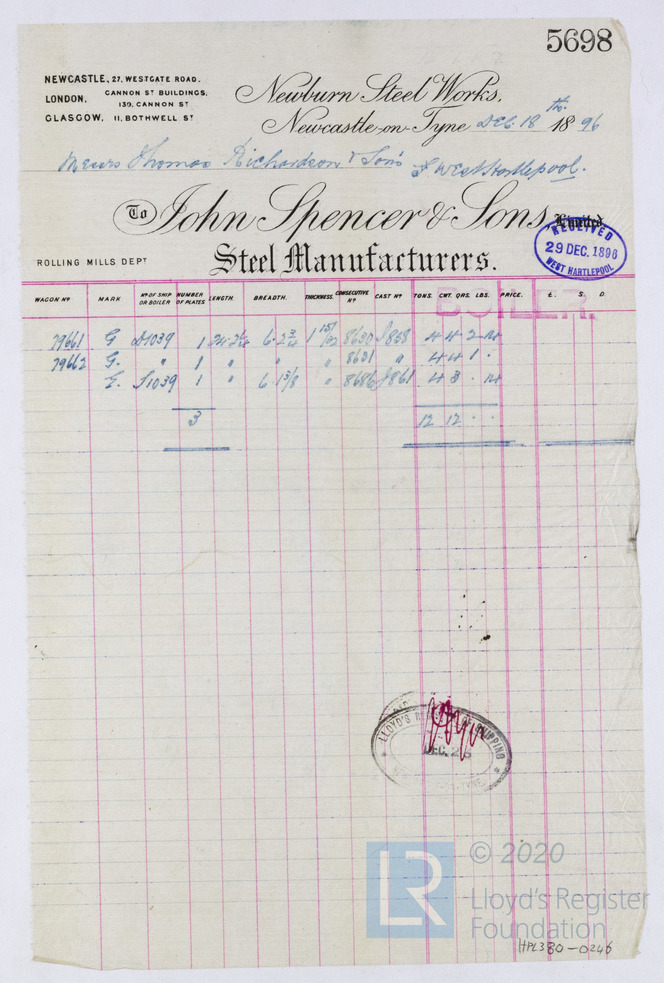 5698
NEWCASTLE, 27, WESTGATE ROAD.
LONDON, CANNON ST BUILDINGS, 139, CANNON ST
GLASGOW, 11, BOTHWELL ST
Newburn Steel Works,
Newcastle-on-Tyne Dec. 18th 1896
Messrs Thomas Richardson & Sons West Hartlepool.
To John Spencer & Sons, Limited
Steel Manufacturers.
ROLLING MILLS DEPT
RECEIVED
29 DEC. 1896
WEST HARTLEPOOL
BOILER.
WAGON No MARK No OF SHIP OR BOILER NUMBER OF PLATES LENGTH. BREADTH. THICKNESS. CONSECUTIVE No CAST No TONS. CWT. QRS. LBS. PRICE. £. S. D.
79661 G 1039 1 6·2 3/4 8630 4 4 2 14
79662 G. " 1 " " " 8631 " 4 4 1 ·
1039 1 " 6·1 3/8 " 8686 4 3 · 14
3 12 12 · ·
LLOYD'S REGISTER OF SHIPPING
DEC. 23
LR
© 2020
Lloyd's Register
Foundation
HPL380-0246